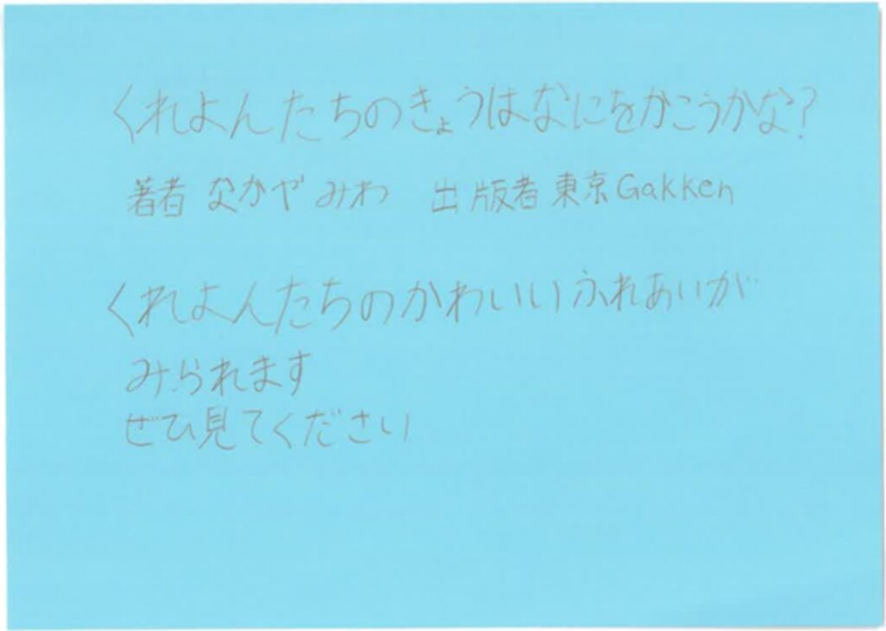 くれよんたちのきょうはなにをかこうかな?
著者 なかや みわ 出版者 東京Gakken
くれよんたちのかわいいふれあいが
みられます
ぜひ見てください